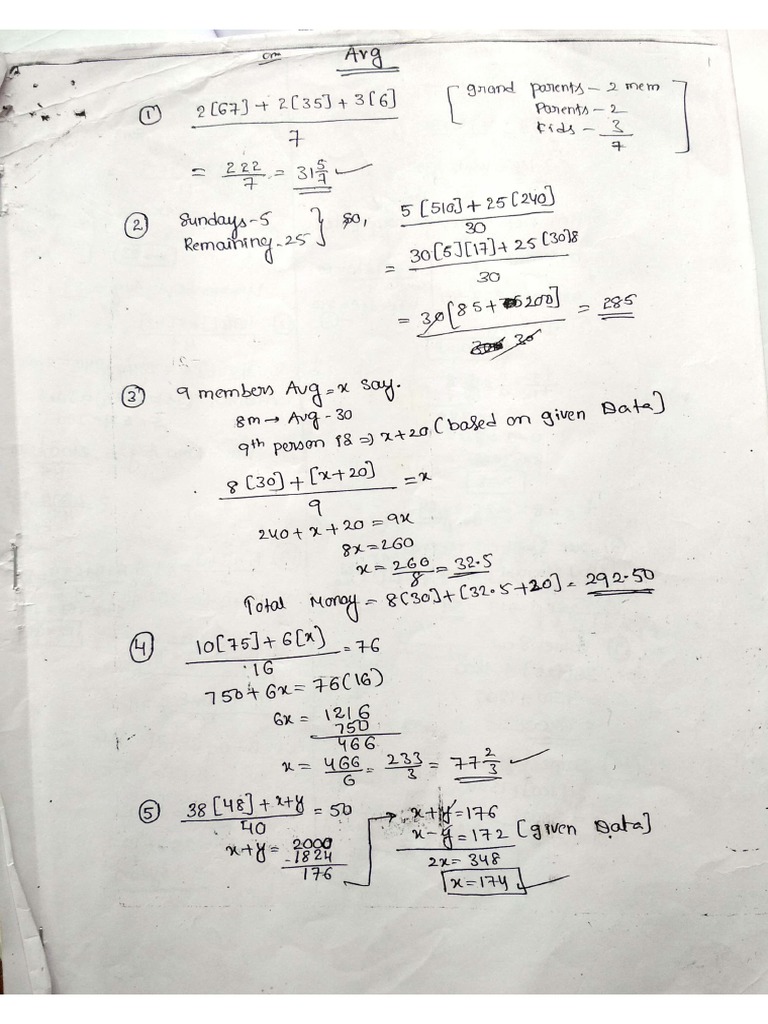 Avg
① 2[67] + 2[35] + 3[6] / 7
[grand parents - 2 mem
Parents - 2
Kids - 3
7]
= 222/7 = 31 5/7 ✓
② Sundays - 5
Remaining - 25 } so, 5[510] + 25[240] / 30
= 30[5][17] + 25[30]8 / 30
= 30[85 + 200] / 30 = 285
③ 9 members Avg = x say.
8m → Avg - 30
9th person is ⇒ x+20 (based on given Data]
8[30] + [x+20] / 9 = x
240 + x + 20 = 9x
8x = 260
x = 260/8 = 32.5
Total Money = 8(30] + [32.5 + 20] = 292.50
④ 10[75] + 6[x) / 16 = 76
750 + 6x = 76(16)
6x = 1216
750
466
x = 466/6 = 233/3 = 77 2/3 ✓
⑤ 38[48] + x+y / 40 = 50
x+y = 2000
-1824
176
→ x+y = 176
x-y = 172 [given Data]
2x = 348
x = 174 ✓